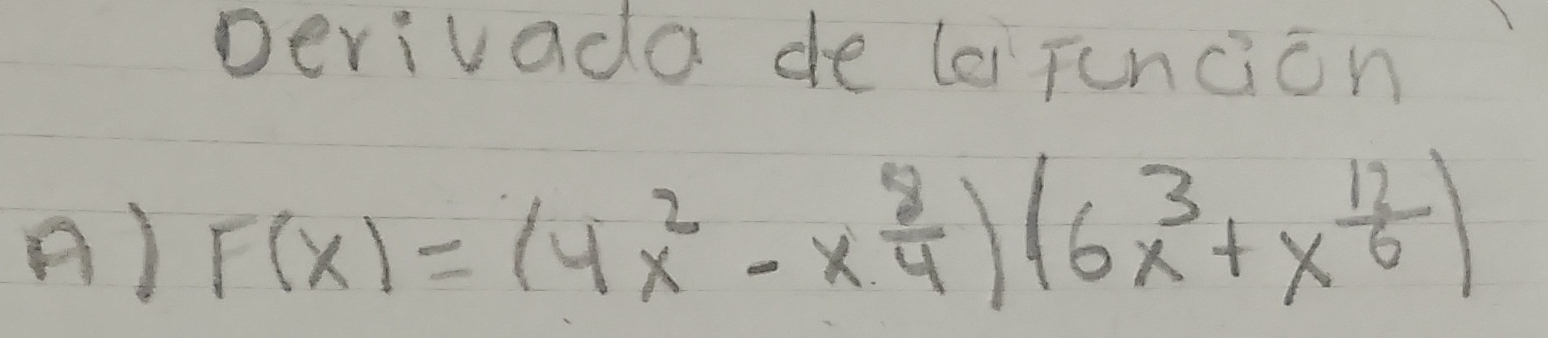 Derivada de la Función
A) F(x) = (4x² - x^(8/4))(6x³ + x^(12/6))